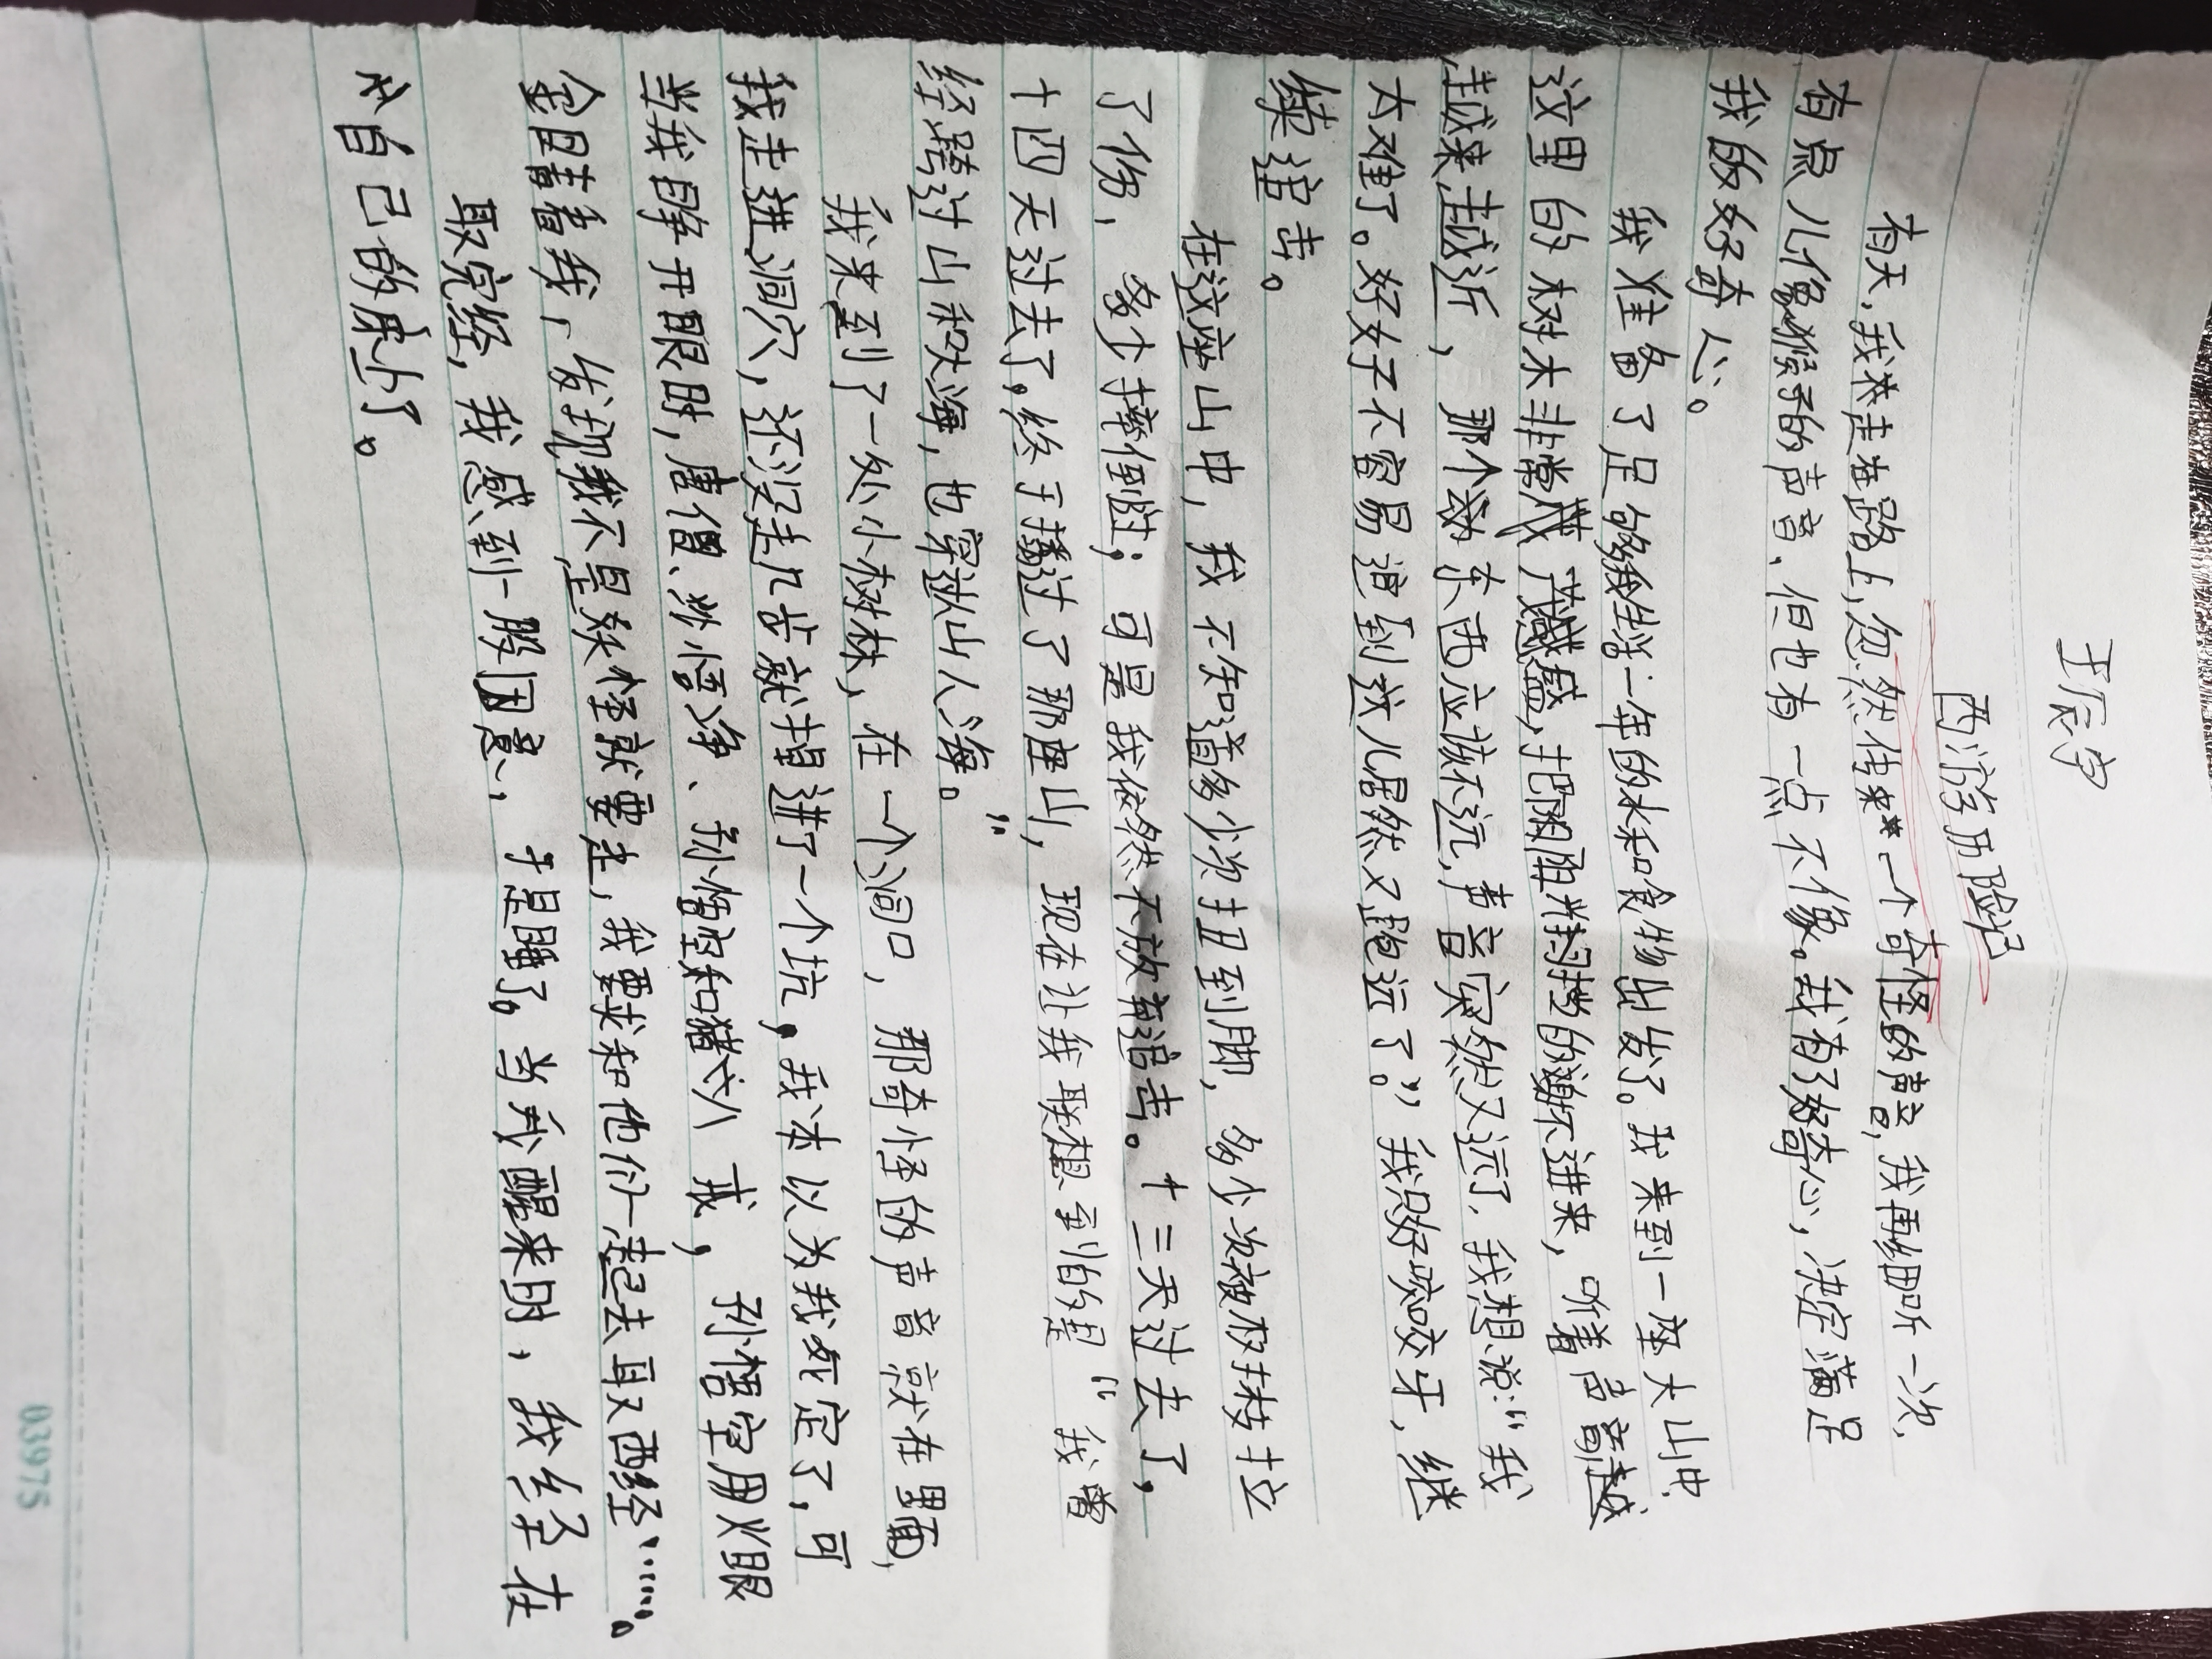 王辰宇
西游历险记
有天,我走在路上,忽然传来一个奇怪的声音,我再细听一次,
有点儿像猴子的声音、但也有一点不像。我有了好奇心,决定满足
我的好奇心。
我准备了足够我生活一年的水和食物出发了。我来到一座大山中
这里的树木非常茂盛,把阳阳光封挡的谢不进来,听着声音越
来越近,那个东西应该不远,声音突然又远了,我想说:“我
太难了。好好子不容易追到这儿居然又跑远了。”我只好咬咬牙、继
续追击。
在这座山中,我不知道多少次扭到脚,多少次被树枝拉
了伤,多少摔倒过;可是我依然不放弃追击。十三天过去了,
十四天过去了,终于翻过了那座山,现在让我联想到的是“我曾
经跨过山和大海,也穿过人山人海。”
我来到了一处小树林,在一个洞口,那奇怪的声音就在里面,
我走进洞穴,还没走几步就掉进了一个坑,我本以为我死定了,可
当我睁开眼时,唐僧、沙悟净、孙悟空和猪八戒,孙悟空用火眼
金睛看我,发现我不是妖怪就要走,我要求和他们一起去取西经……。
取完经,我感到一股困意,于是睡了。当我醒来时,我经在
自己的床上了。
03975